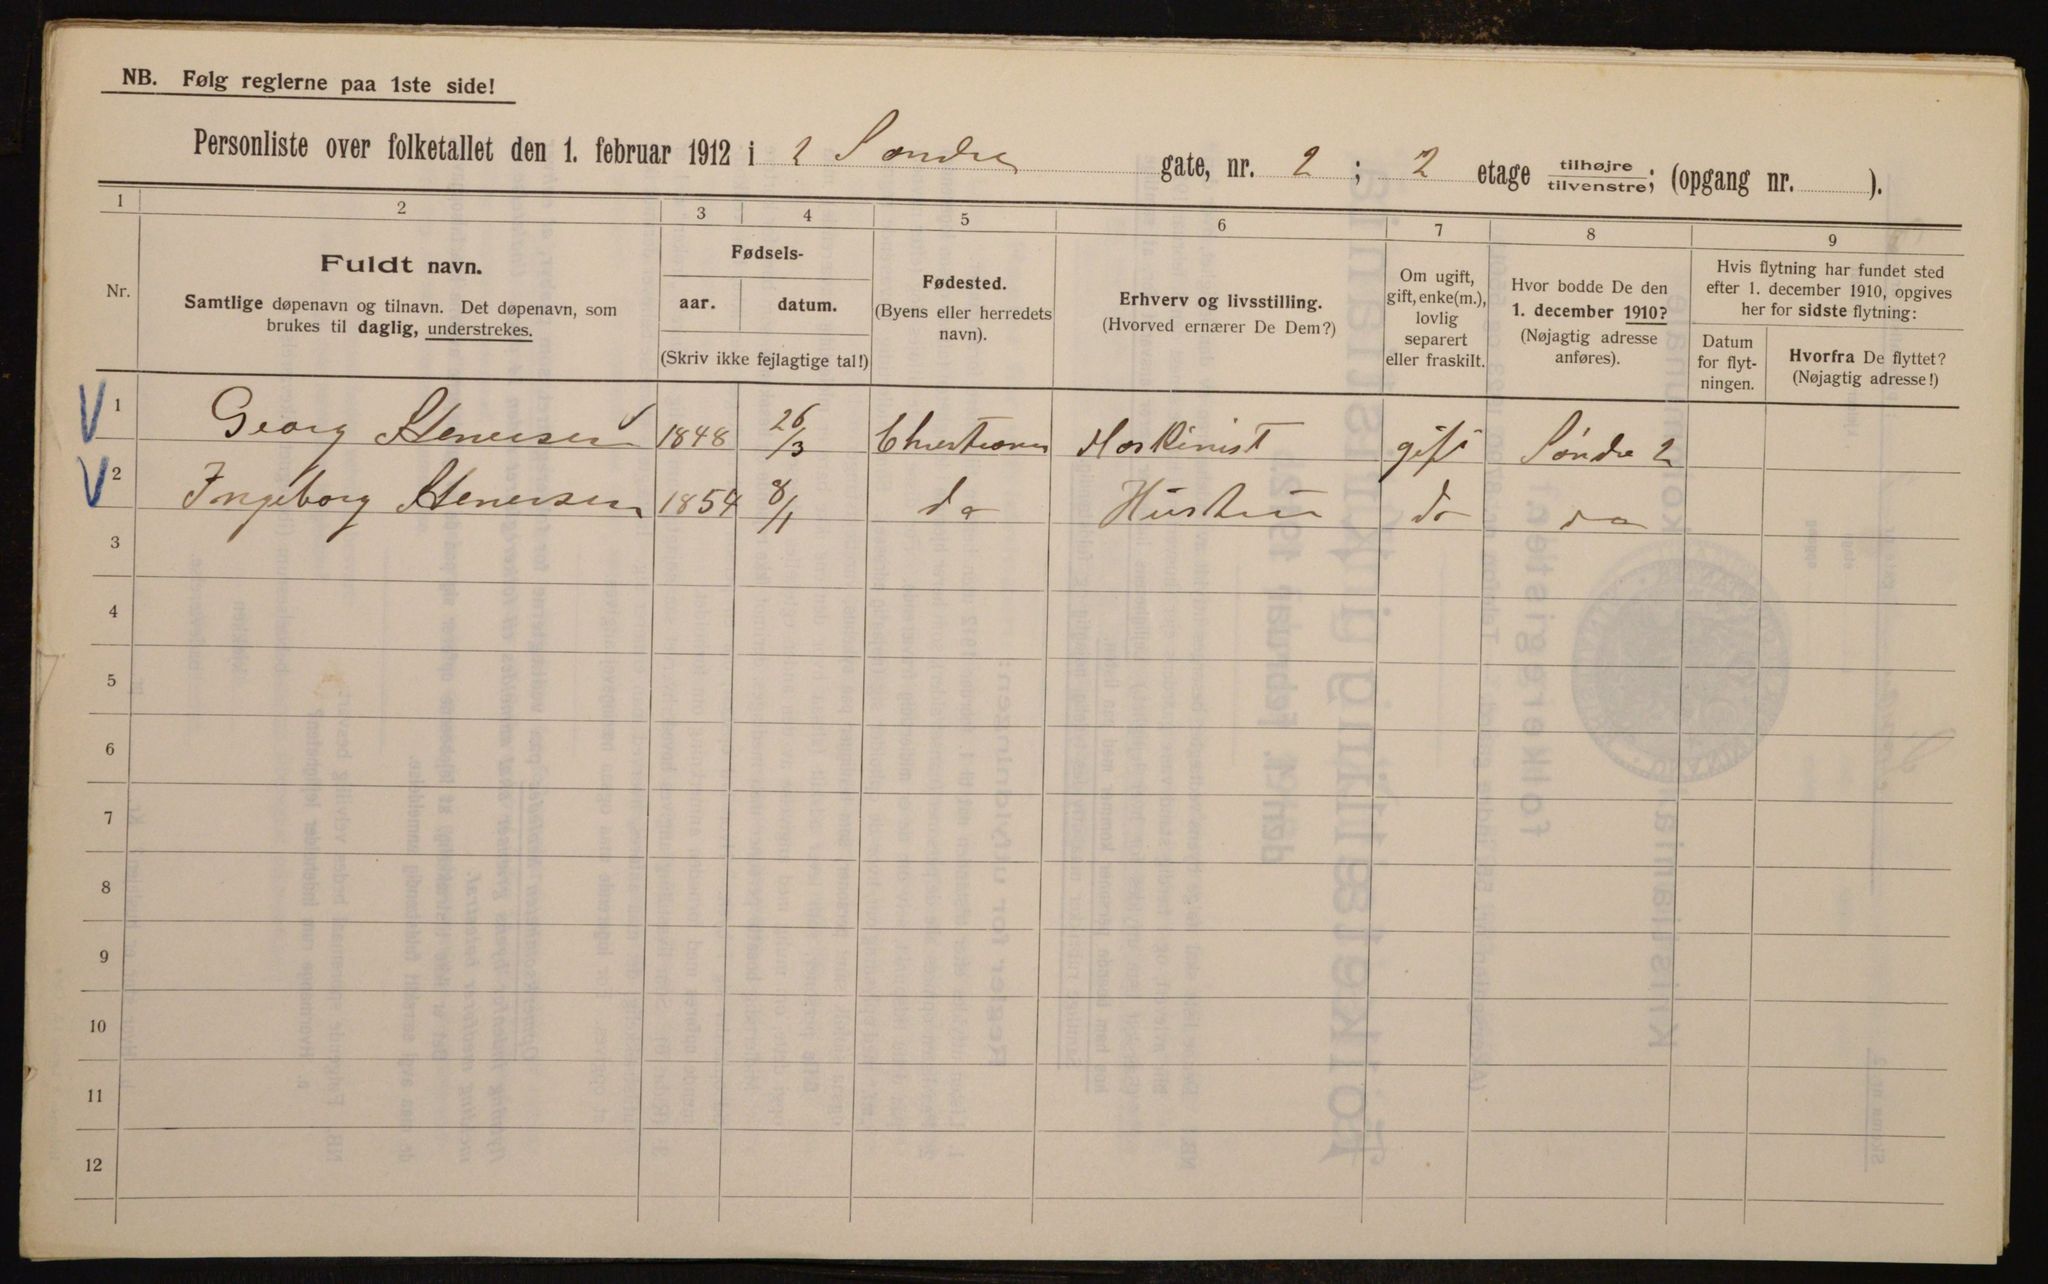 NB. Følg reglerne paa 1ste side!
Personliste over folketallet den 1. februar 1912 i 2 Søndre gate, nr. 2; 2 etage tilhøjre/tilvenstre; (opgang nr. ).
1 2 3 4 5 6 7 8 9
Nr.
Fuldt navn.
Samtlige døpenavn og tilnavn. Det døpenavn, som
brukes til daglig, understrekes.
Fødsels-
aar. datum.
(Skriv ikke fejlagtige tal!)
Fødested.
(Byens eller herredets
navn).
Erhverv og livsstilling.
(Hvorved ernærer De Dem?)
Om ugift,
gift, enke(m.),
lovlig
separert
eller fraskilt.
Hvor bodde De den
1. december 1910?
(Nøjagtig adresse
anføres).
Hvis flytning har fundet sted
efter 1. december 1910, opgives
her for sidste flytning:
Datum
for flyt-
ningen.
Hvorfra De flyttet?
(Nøjagtig adresse!)
1 Georg Stenersen 1848 26/3 Maskinist gift Søndre 2
2 Ingeborg Stenersen 1854 8/11 do Hustru do do
3
4
5
6
7
8
9
10
11
12